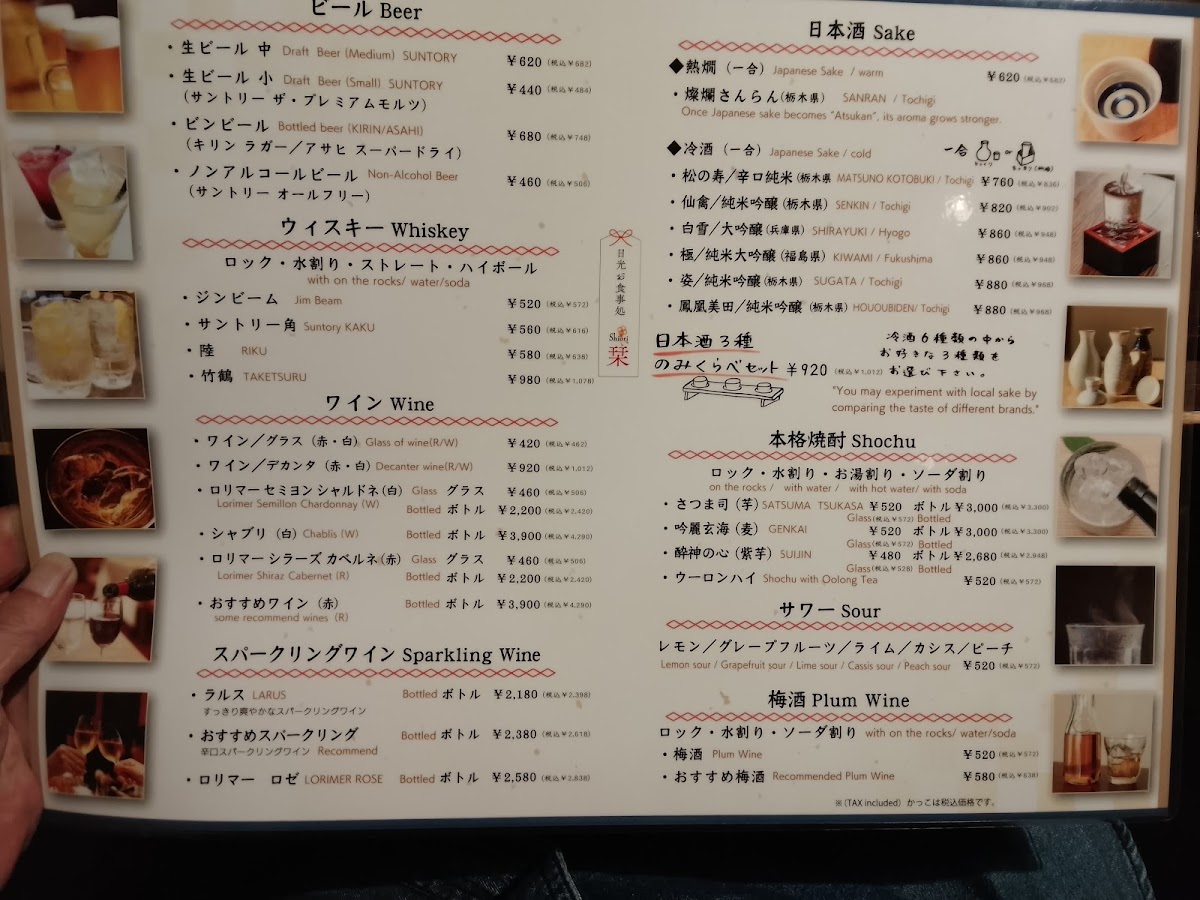 ビール Beer
・生ビール 中 Draft Beer (Medium) SUNTORY ￥620 (税込￥682)
・生ビール 小 Draft Beer (Small) SUNTORY ￥440 (税込￥484)
(サントリー ザ・プレミアムモルツ)
・ビンビール Bottled beer (KIRIN/ASAHI) ￥680 (税込￥748)
(キリン ラガー／アサヒ スーパードライ)
・ノンアルコールビール Non-Alcohol Beer ￥460 (税込￥506)
(サントリー オールフリー)
ウィスキー Whiskey
ロック・水割り・ストレート・ハイボール
with on the rocks/ water/soda
・ジンビーム Jim Beam ￥520 (税込￥572)
・サントリー角 Suntory KAKU ￥560 (税込￥616)
・陸 RIKU ￥580 (税込￥638)
・竹鶴 TAKETSURU ￥980 (税込￥1,078)
ワイン Wine
・ワイン／グラス (赤・白) Glass of wine(R/W) ￥420 (税込￥462)
・ワイン／デカンタ (赤・白) Decanter wine(R/W) ￥920 (税込￥1,012)
・ロリマー セミヨン シャルドネ(白) Glass グラス ￥460 (税込￥506)
Lorimer Semillon Chardonnay (W) Bottled ボトル ￥2,200 (税込￥2,420)
・シャブリ (白) Chablis (W) Bottled ボトル ￥3,900 (税込￥4,290)
・ロリマー シラーズ カベルネ(赤) Glass グラス ￥460 (税込￥506)
Lorimer Shiraz Cabernet (R) Bottled ボトル ￥2,200 (税込￥2,420)
・おすすめワイン (赤) Bottled ボトル ￥3,900 (税込￥4,290)
some recommend wines (R)
スパークリングワイン Sparkling Wine
・ラルス LARUS Bottled ボトル ￥2,180 (税込￥2,398)
すっきり爽やかなスパークリングワイン
・おすすめスパークリング Bottled ボトル ￥2,380 (税込￥2,618)
辛口スパークリングワイン Recommend
・ロリマー ロゼ LORIMER ROSE Bottled ボトル ￥2,580 (税込￥2,838)
日光お食事処
Shiori
栞
日本酒 Sake
◆熱燗 (一合) Japanese Sake / warm ￥620 (税込￥682)
・燦爛さんらん(栃木県) SANRAN / Tochigi
Once Japanese sake becomes "Atsukan", its aroma grows stronger.
◆冷酒 (一合) Japanese Sake / cold 一合 or
・松の寿／辛口純米(栃木県 MATSUNO KOTOBUKI / Tochigi ￥760 (税込￥836)
・仙禽／純米吟醸(栃木県) SENKIN / Tochigi ￥820 (税込￥902)
・白雪／大吟醸(兵庫県) SHIRAYUKI / Hyogo ￥860 (税込￥948)
・極／純米大吟醸(福島県) KIWAMI / Fukushima ￥860 (税込￥948)
・姿／純米吟醸(栃木県) SUGATA / Tochigi ￥880 (税込￥968)
・鳳凰美田／純米吟醸(栃木県) HOUOUBIDEN/ Tochigi ￥880 (税込￥968)
日本酒3種
のみくらべセット ￥920 (税込￥1,012)
冷酒6種類の中から
お好きな3種類を
お選び下さい。
"You may experiment with local sake by
comparing the taste of different brands."
本格焼酎 Shochu
ロック・水割り・お湯割り・ソーダ割り
on the rocks / with water / with hot water/ with soda
・さつま司 (芋) SATSUMA TSUKASA ￥520 ボトル￥3,000 (税込￥3,300)
Glass(税込￥572) Bottled
・吟麗玄海 (麦) GENKAI ￥520 ボトル￥3,000 (税込￥3,300)
Glass(税込￥572) Bottled
・酔神の心 (紫芋) SUIJIN ￥480 ボトル￥2,680 (税込￥2,948)
Glass(税込￥528) Bottled
・ウーロンハイ Shochu with Oolong Tea ￥520 (税込￥572)
サワー Sour
レモン／グレープフルーツ／ライム／カシス／ピーチ
Lemon sour / Grapefruit sour / Lime sour / Cassis sour / Peach sour ￥520 (税込￥572)
梅酒 Plum Wine
ロック・水割り・ソーダ割り with on the rocks/ water/soda
・梅酒 Plum Wine ￥520 (税込￥572)
・おすすめ梅酒 Recommended Plum Wine ￥580 (税込￥638)
※(TAX included) かっこは税込価格です。